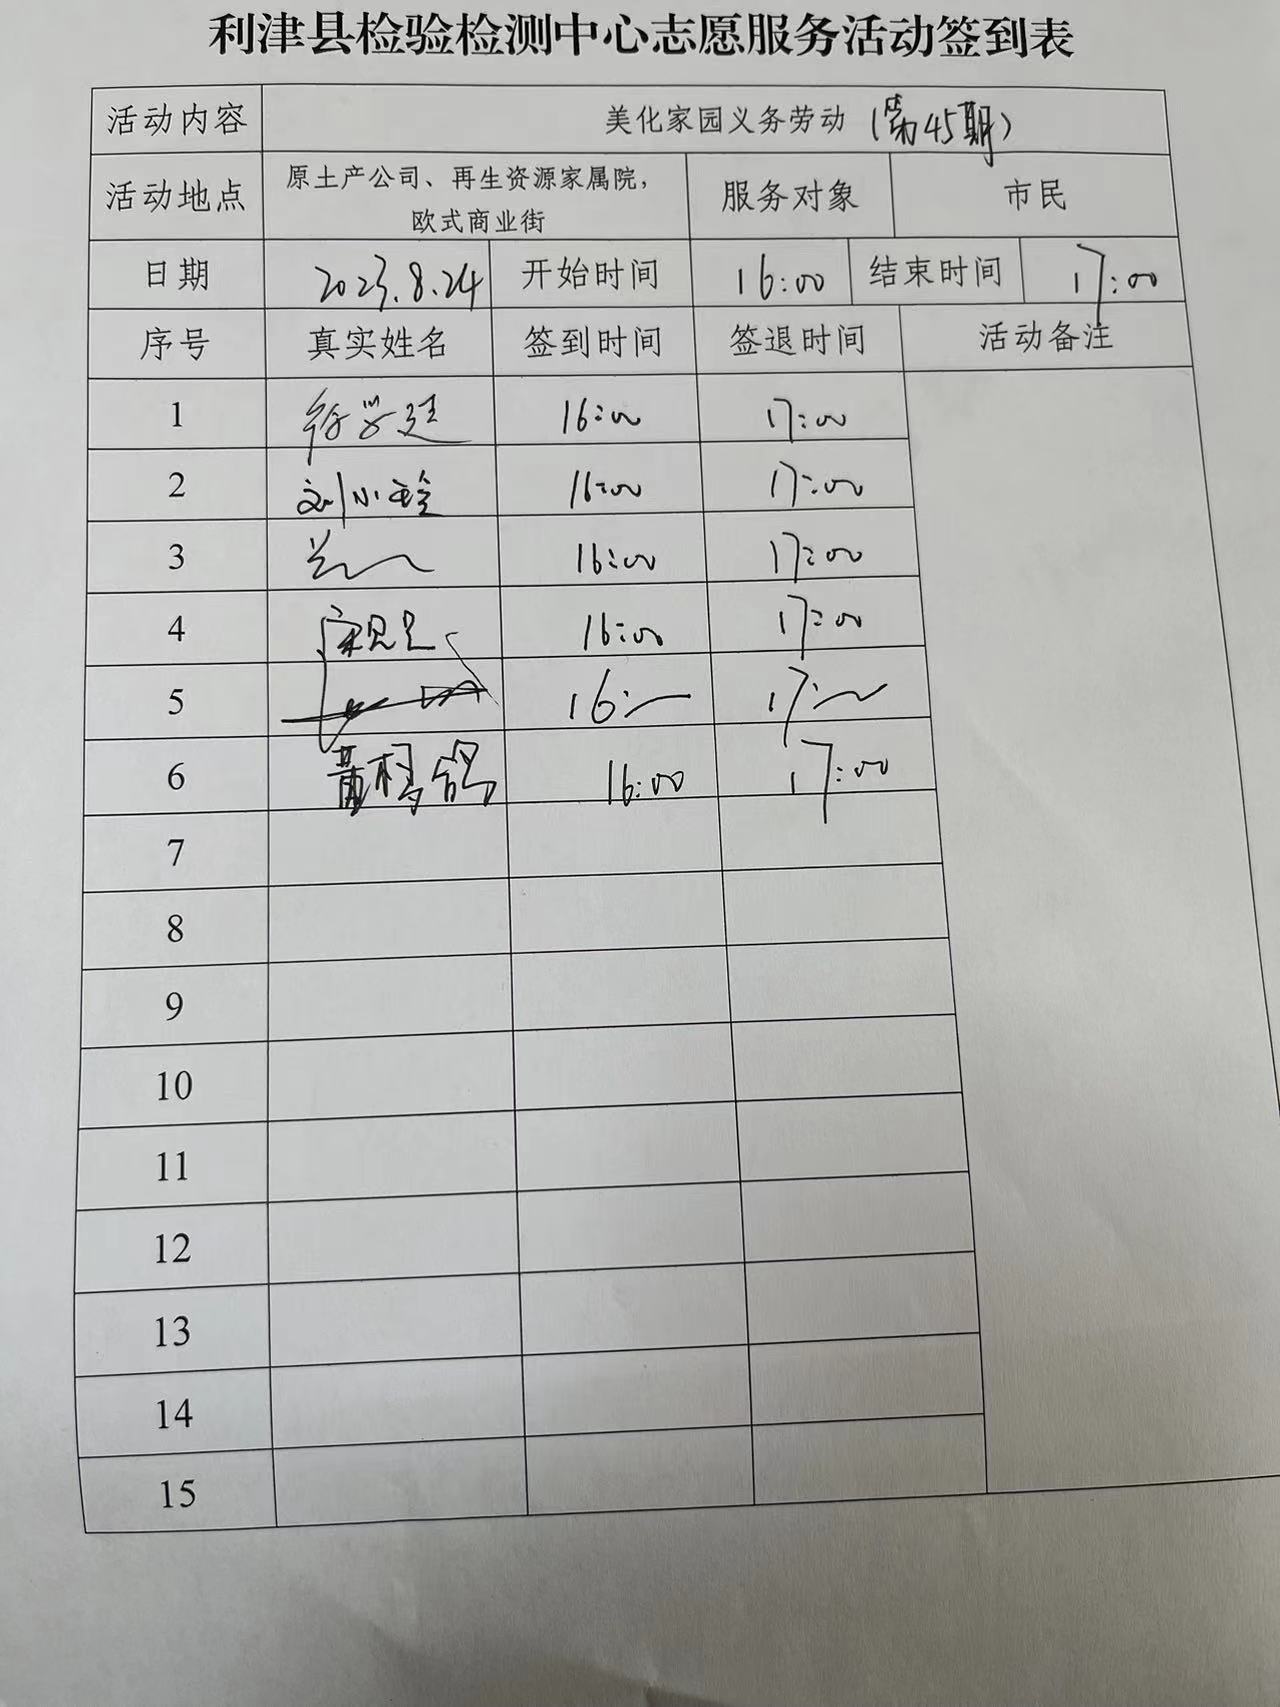 利津县检验检测中心志愿服务活动签到表
活动内容 美化家园义务劳动 (第45期)
活动地点 原土产公司、再生资源家属院, 欧式商业街 服务对象 市民
日期 2023.8.24 开始时间 16:00 结束时间 17:00
序号 真实姓名 签到时间 签退时间 活动备注
1 16:00 17:00
2 刘小玲 16:00 17:00
3 16:00 17:00
4 16:00 17:00
5 16: 17:
6 16:00 17:00
7
8
9
10
11
12
13
14
15